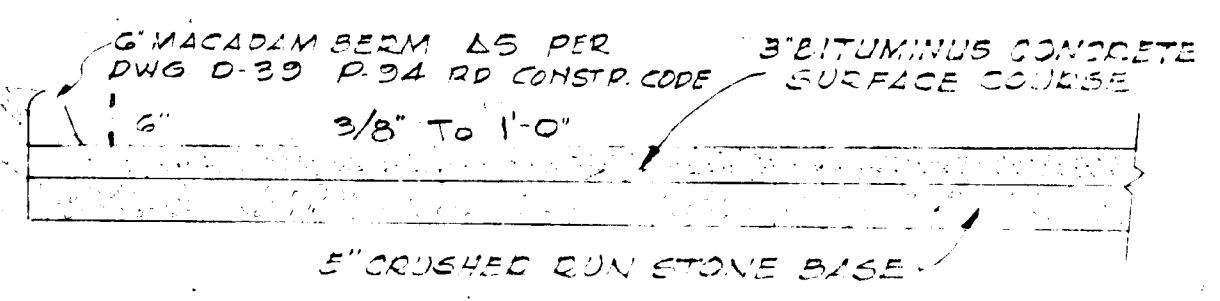 6" MACADAM BERM AS PER
DWG D-39 P-94 RD CONSTR. CODE
3" BITUMINUS CONCRETE
SURFACE COURSE
6"
3/8" To 1'-0"
5" CRUSHER RUN STONE BASE